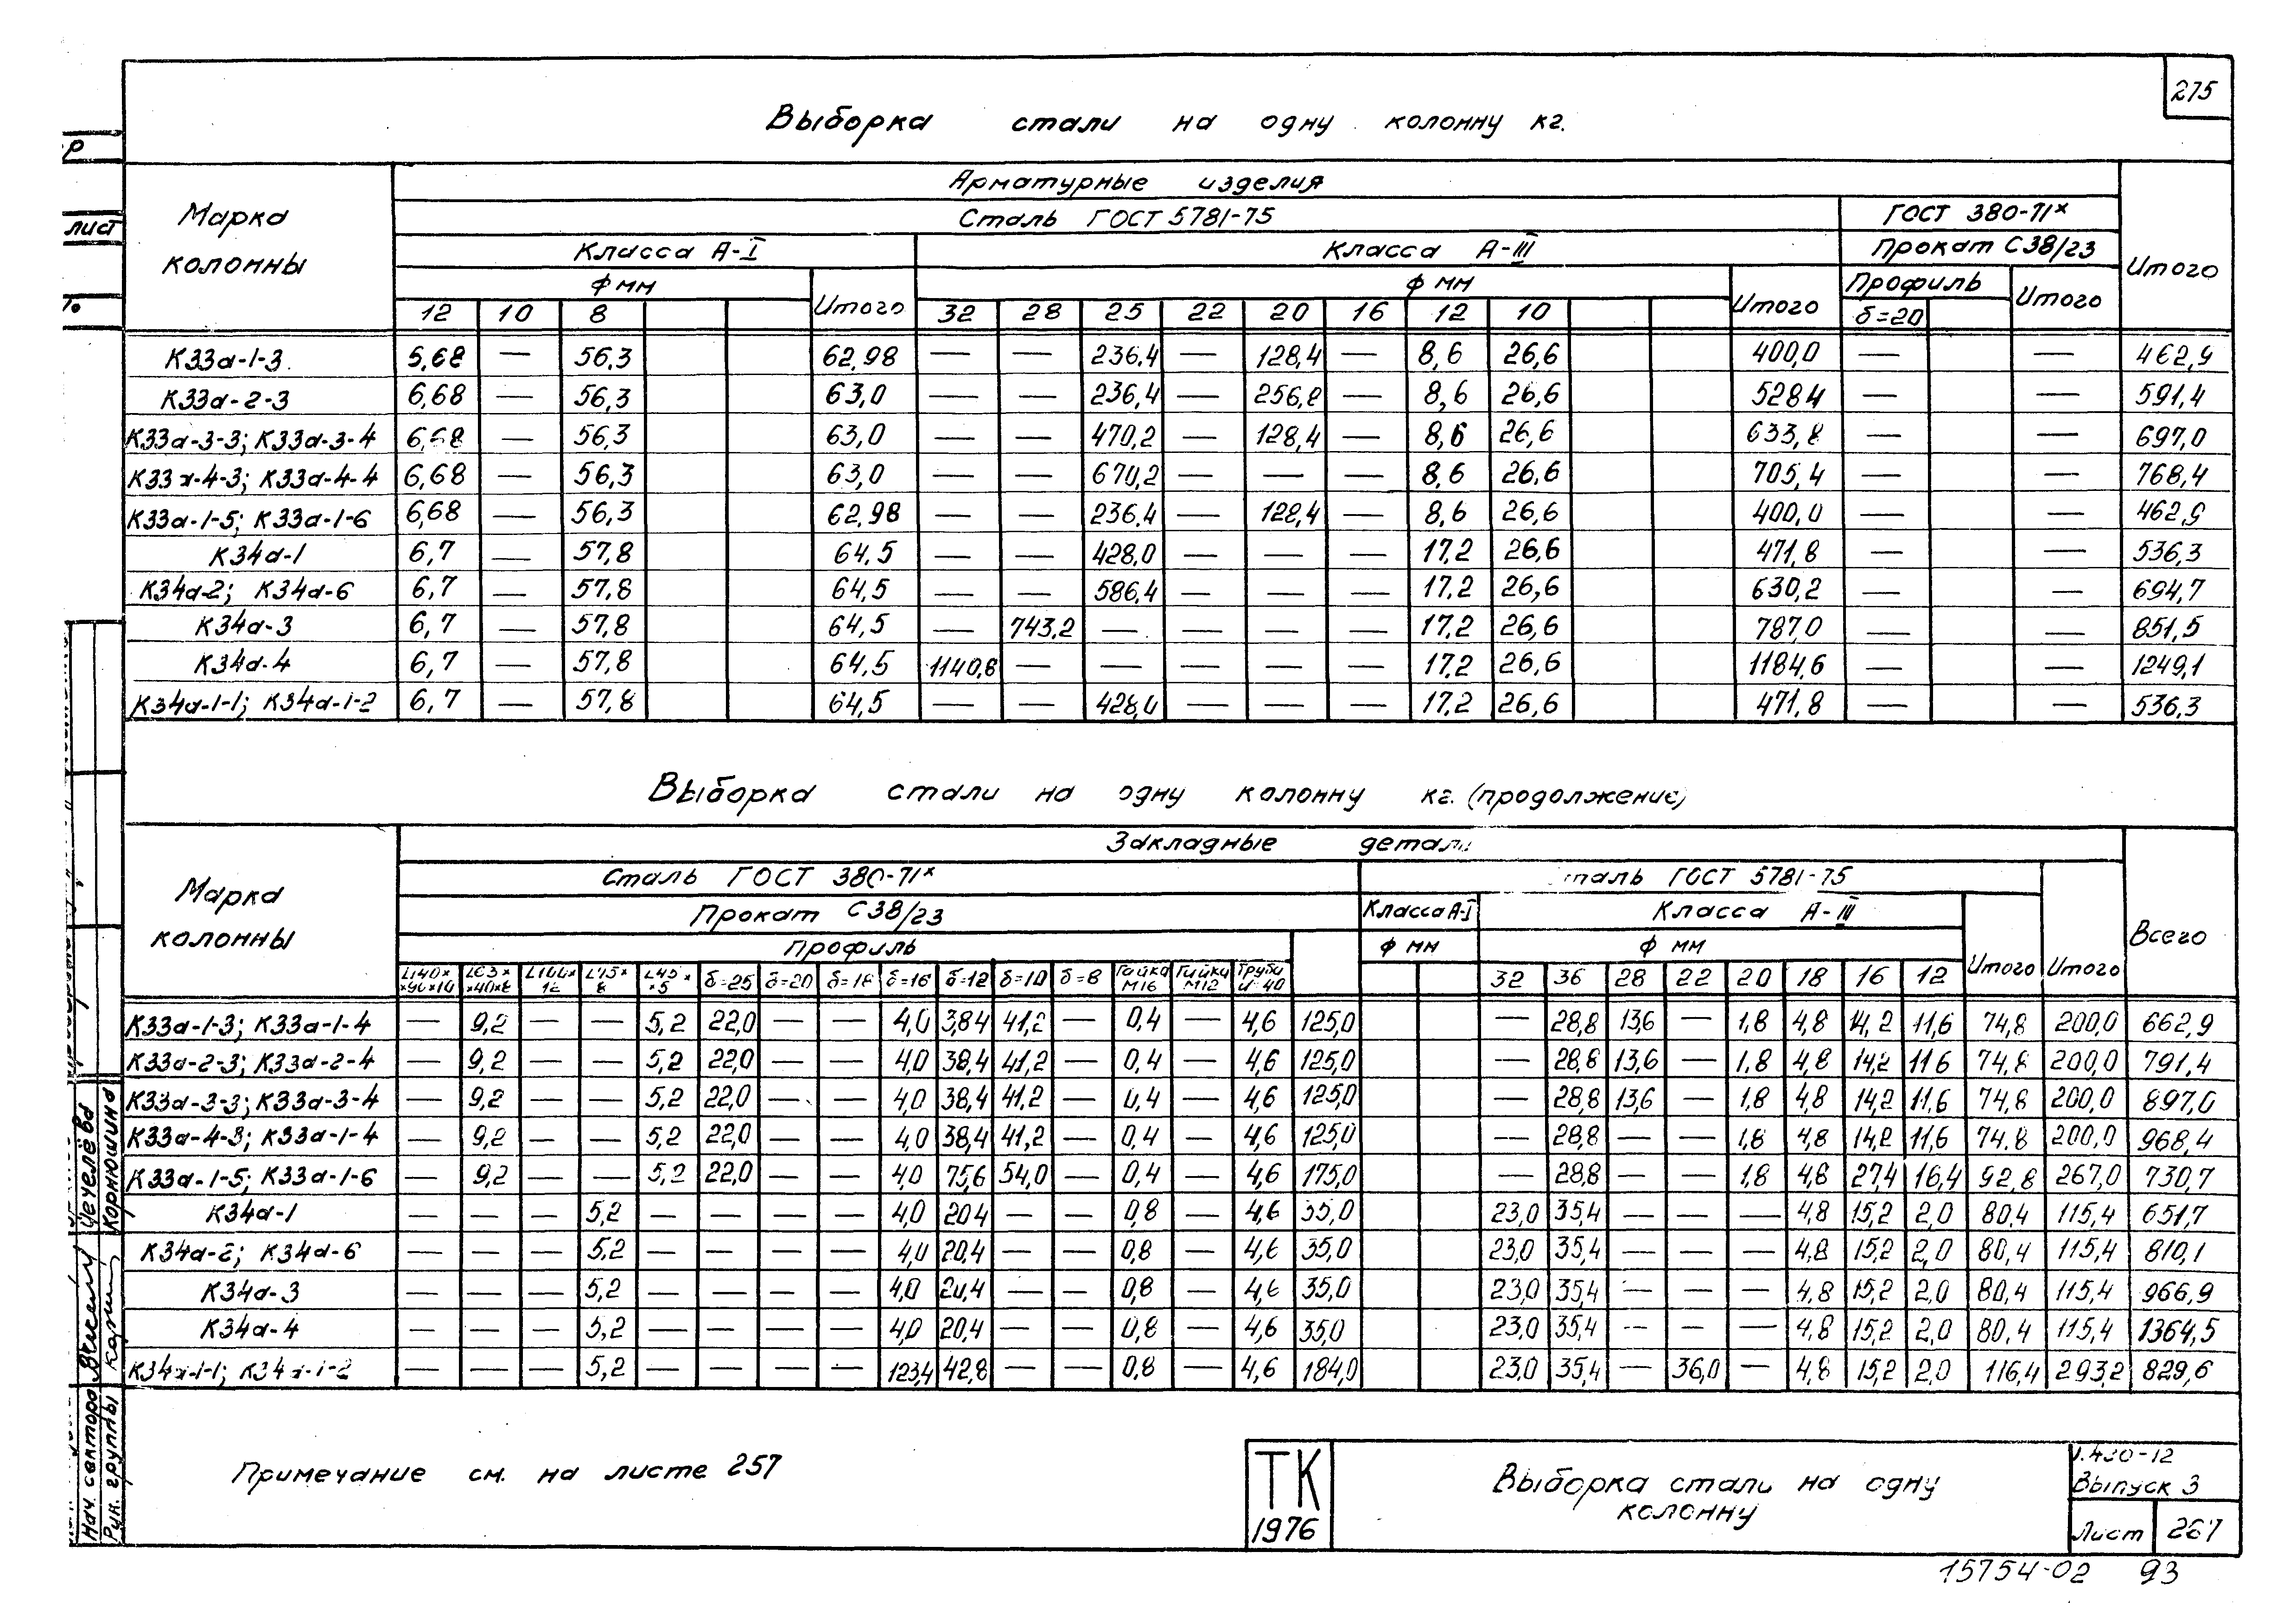 275
Выборка стали на одну колонну кг.
Марка колонны
Арматурные изделия
Итого
Сталь ГОСТ 5781-75
ГОСТ 380-71ˣ
Класса А-I
Класса А-III
Прокат С38/23
ф мм
Итого
ф мм
Итого
Профиль
Итого
12 10 8
32 28 25 22 20 16 12 10
δ=20
К33а-1-3 5,68 — 56,3 62,98 — — 236,4 — 128,4 — 8,6 26,6 400,0 — — 462,9
К33а-2-3 6,68 — 56,3 63,0 — — 236,4 — 256,8 — 8,6 26,6 528,4 — — 591,4
К33а-3-3; К33а-3-4 6,68 — 56,3 63,0 — — 470,2 — 128,4 — 8,6 26,6 633,8 — — 697,0
К33а-4-3; К33а-4-4 6,68 — 56,3 63,0 — — 670,2 — — — 8,6 26,6 705,4 — — 768,4
К33а-1-5; К33а-1-6 6,68 — 56,3 62,98 — — 236,4 — 128,4 — 8,6 26,6 400,0 — — 462,9
К34а-1 6,7 — 57,8 64,5 — — 428,0 — — — 17,2 26,6 471,8 — — 536,3
К34а-2; К34а-6 6,7 — 57,8 64,5 — — 586,4 — — — 17,2 26,6 630,2 — — 694,7
К34а-3 6,7 — 57,8 64,5 — 743,2 — — — — 17,2 26,6 787,0 — — 851,5
К34а-4 6,7 — 57,8 64,5 1140,8 — — — — — 17,2 26,6 1184,6 — — 1249,1
К34а-1-1; К34а-1-2 6,7 — 57,8 64,5 — — 428,0 — — — 17,2 26,6 471,8 — — 536,3
Выборка стали на одну колонну кг. (продолжение)
Марка колонны
Закладные детали
Всего
Сталь ГОСТ 380-71ˣ
сталь ГОСТ 5781-75
Итого
Прокат С38/23
Класса А-I
Класса А-III
Итого
Профиль
ф мм
ф мм
L140××90×10 L63××40×8 L100×12 L75×8 L45××5 δ=25 δ=20 δ=18 δ=16 δ=12 δ=10 δ=8 Гайка М16 Гайки М12 Труба 40
32 36 28 22 20 18 16 12
К33а-1-3; К33а-1-4 — 9,2 — — 5,2 22,0 — — 4,0 38,4 41,2 — 0,4 — 4,6 125,0 — 28,8 13,6 — 1,8 4,8 14,2 11,6 74,8 200,0 662,9
К33а-2-3; К33а-2-4 — 9,2 — — 5,2 22,0 — — 4,0 38,4 41,2 — 0,4 — 4,6 125,0 — 28,8 13,6 — 1,8 4,8 14,2 11,6 74,8 200,0 791,4
К33а-3-3; К33а-3-4 — 9,2 — — 5,2 22,0 — — 4,0 38,4 41,2 — 0,4 — 4,6 125,0 — 28,8 13,6 — 1,8 4,8 14,2 11,6 74,8 200,0 897,0
К33а-4-3; К33а-1-4 — 9,2 — — 5,2 22,0 — — 4,0 38,4 41,2 — 0,4 — 4,6 125,0 — 28,8 — — 1,8 4,8 14,2 11,6 74,8 200,0 968,4
К33а-1-5; К33а-1-6 — 9,2 — — 5,2 22,0 — — 4,0 75,6 54,0 — 0,4 — 4,6 175,0 — 28,8 — — 1,8 4,8 27,4 16,4 92,8 267,0 730,7
К34а-1 — — — 5,2 — — — — 4,0 20,4 — — 0,8 — 4,6 35,0 23,0 35,4 — — — 4,8 15,2 2,0 80,4 115,4 651,7
К34а-2; К34а-6 — — — 5,2 — — — — 4,0 20,4 — — 0,8 — 4,6 35,0 23,0 35,4 — — — 4,8 15,2 2,0 80,4 115,4 810,1
К34а-3 — — — 5,2 — — — — 4,0 20,4 — — 0,8 — 4,6 35,0 23,0 35,4 — — — 4,8 15,2 2,0 80,4 115,4 966,9
К34а-4 — — — 5,2 — — — — 4,0 20,4 — — 0,8 — 4,6 35,0 23,0 35,4 — — — 4,8 15,2 2,0 80,4 115,4 1364,5
К34а-1-1; К34а-1-2 — — — 5,2 — — — — 123,4 42,8 — — 0,8 — 4,6 184,0 23,0 35,4 — 36,0 — 4,8 15,2 2,0 116,4 293,2 829,6
Примечание см. на листе 257
ТК
1976
Выборка стали на одну
колонну
1.430-12
Выпуск 3
Лист 267
15754-02 93
лист
Нач. сектора Чечелёва
Рук. группы Корнюшина